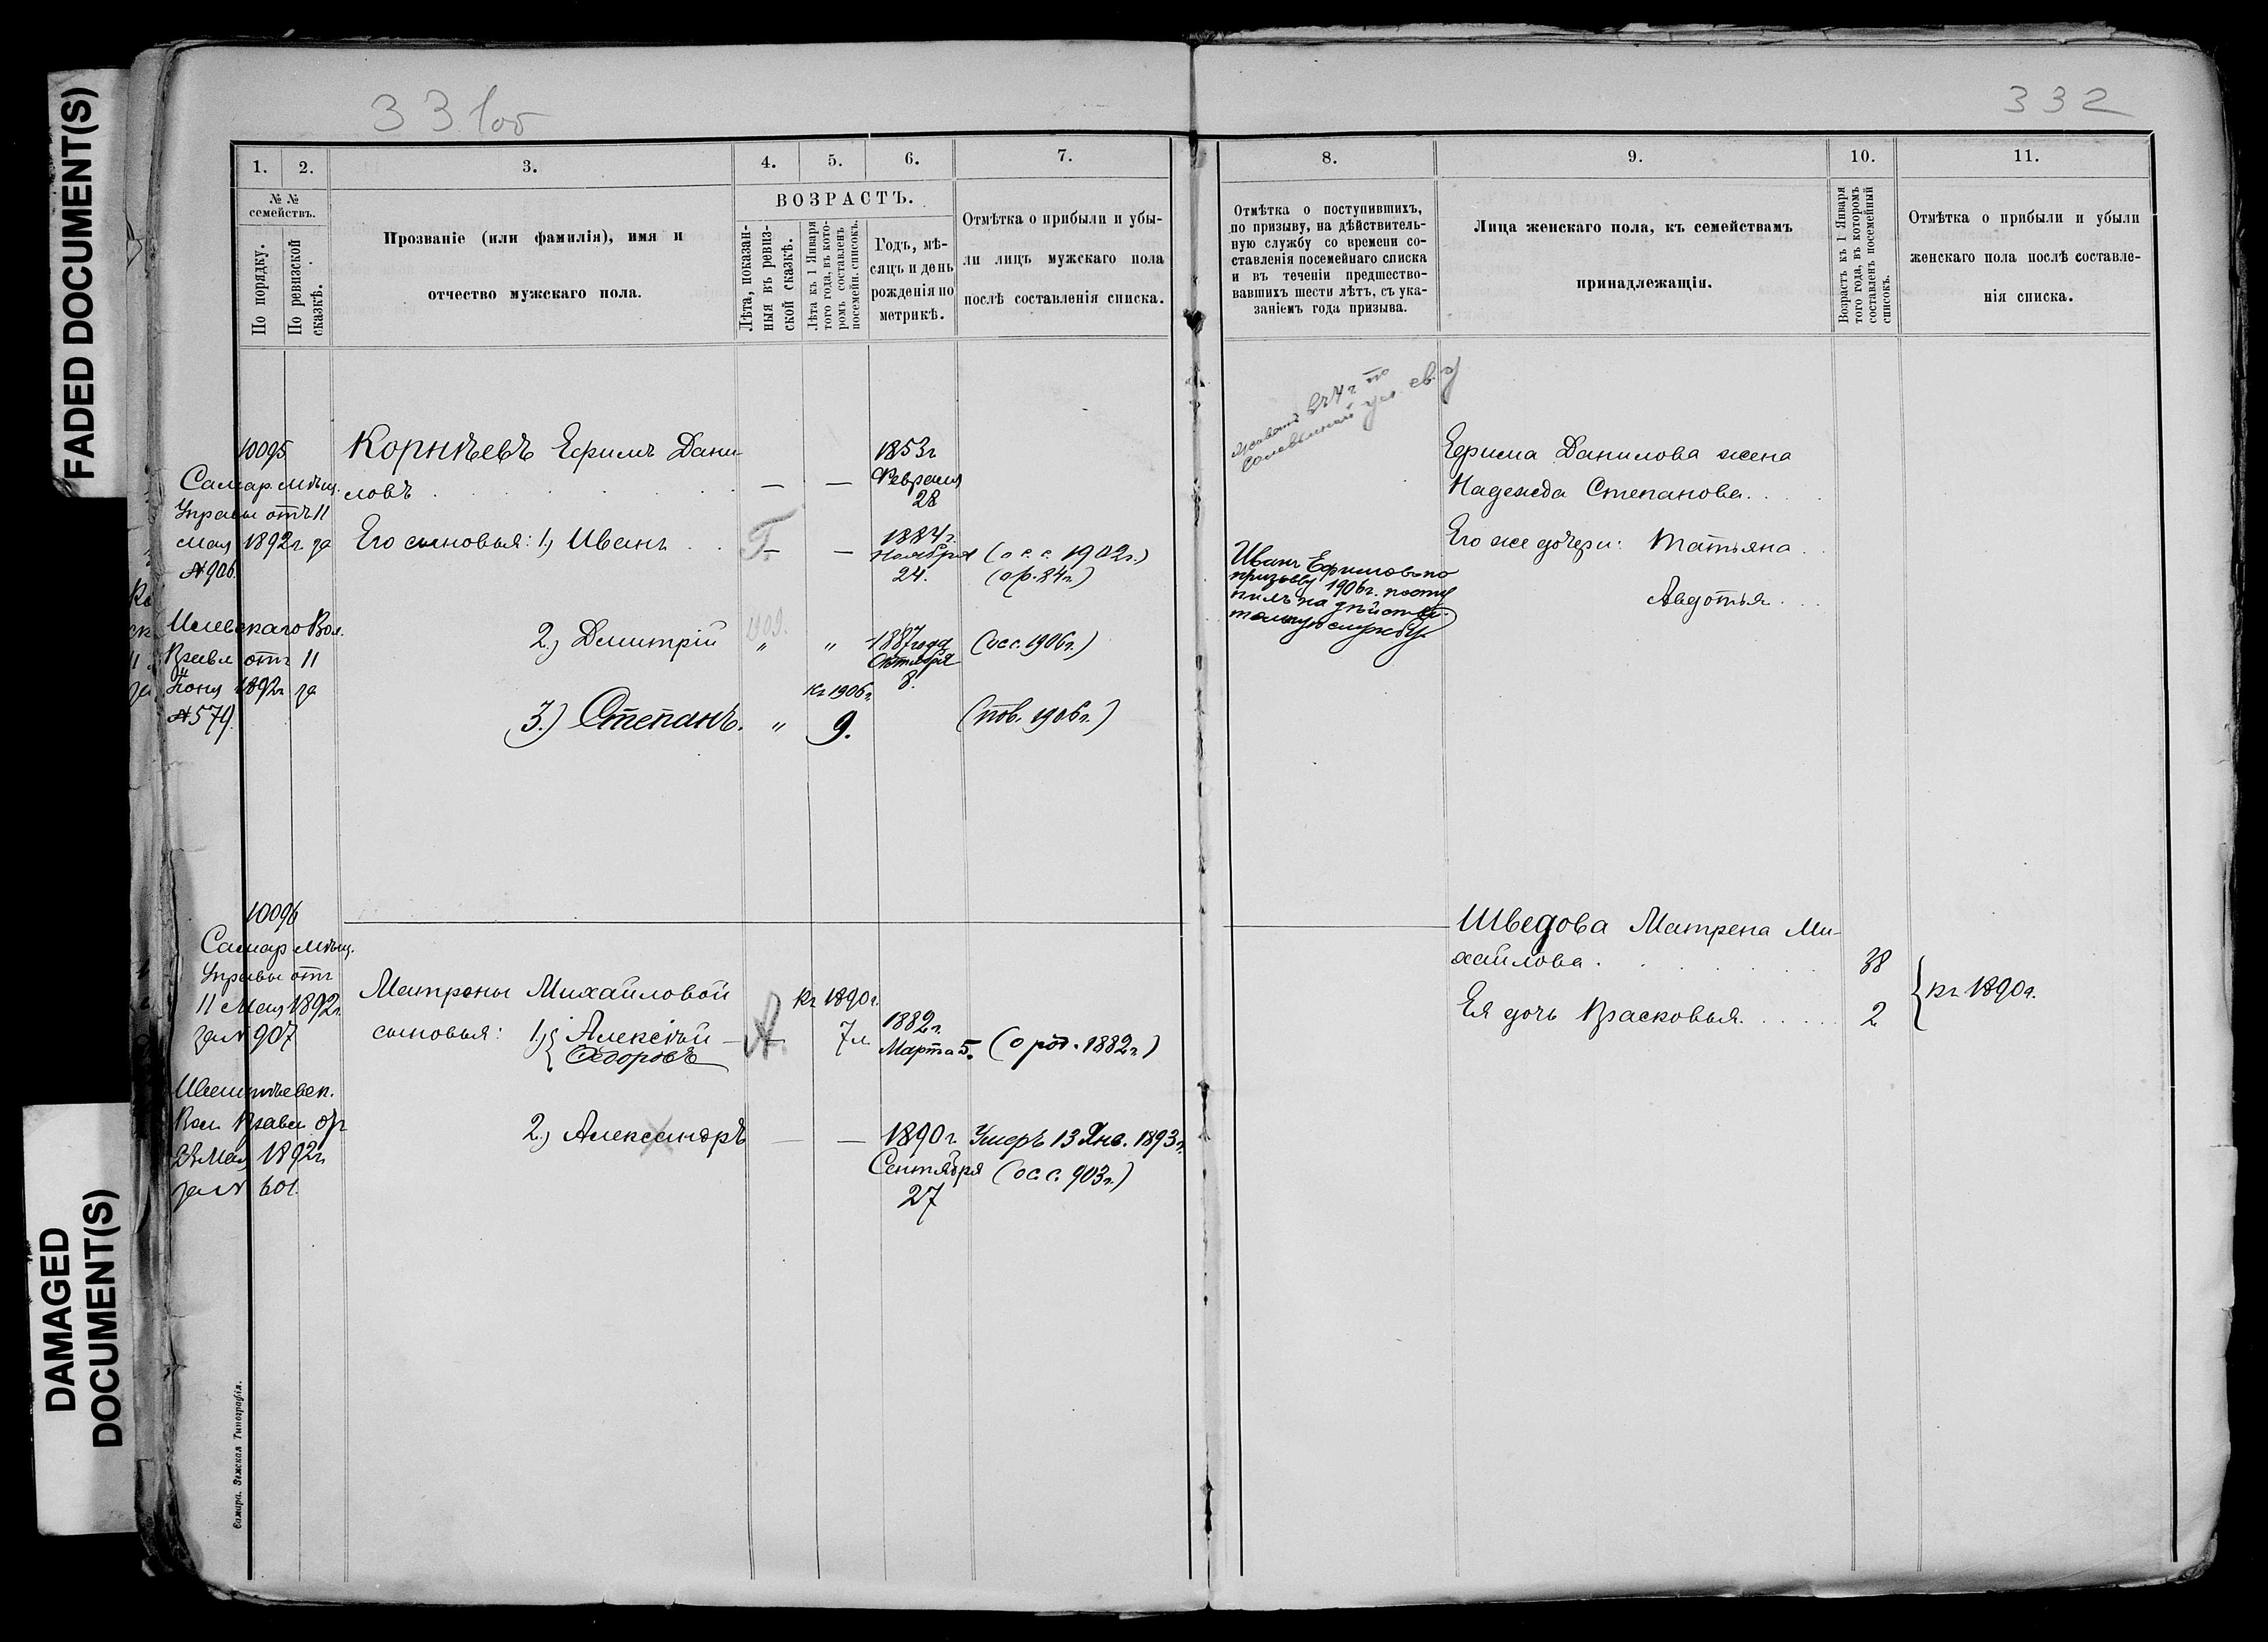 FADED DOCUMENT(S)
DAMAGED
DOCUMENT(S)
331об
1.
2.
3.
4.
5.
6.
7.
№ №
семействъ.
По порядку.
По ревизской
сказкѣ.
Прозваніе (или фамилія), имя и
отчество мужскаго пола.
ВОЗРАСТЪ.
Лѣта, показан-
ныя въ ревиз-
ской сказкѣ.
Лѣта къ 1 Января
того года, въ кото-
ромъ составленъ
посемейн. списокъ.
Годъ, мѣ-
сяцъ и день
рожденія по
метрикѣ.
Отмѣтка о прибыли и убы-
ли лицъ мужскаго пола
послѣ составленія списка.
10095
Самар. мѣщ.
Управы отъ 11
мая 1892г. за
№ 906.
Вол.
Правл отъ 11
Іюня 1892г. за
№ 579.
Корнѣевъ Ефимъ Дани-
ловъ
— —
1853г
Февраля
28
Его сыновья: 1, Иванъ
— —
1884г.
Ноября
24.
(о с. с. 1902г.)
(о р. 84г.)
2.) Дмитрій
1909.
" "
1887 года
Октября
8.
(о с с. 1906г.)
3.) Степанъ.
"
Къ 1906г.
9.
(пов. 1906г.)
10096
Самар мѣщ.
Управы отъ
11 Мая 1892г.
за № 907
Вол. Правл. отъ
Мая 1892г.
за № 601.
Матрены Михайловой
сыновья: 1,) Алексѣй
Ѳедоровъ
Къ 1890г.
7 л
1882г.
Марта 5.
(о род. 1882г.)
2.) Александръ
— —
1890г.
Сентября
27
Умеръ 13 Янв. 1893г.
(о с. с. 903г.)
Самара. Земская Типографія.
332
8.
9.
10.
11.
Отмѣтка о поступившихъ,
по призыву, на дѣйствитель-
ную службу со времени со-
ставленія посемейнаго списка
и въ теченіи предшество-
вавшихъ шести лѣтъ, съ ука-
заніемъ года призыва.
Лица женскаго пола, къ семействамъ
принадлежащія.
Возрастъ къ 1 Января
того года, въ которомъ
составленъ посемейный
списокъ.
Отмѣтка о прибыли и убыли
женскаго пола послѣ составле-
нія списка.
Иванъ Ефимовъ по
призыву 1906г. посту
пилъ на дѣйстви-
тельную службу
Ефима Данилова жена
Надежда Степанова.
Его же дочери: Татьяна
Авдотья
Шведова Матрена Ми-
хайлова.
38
Ея дочь Прасковья.
2
къ 1890г.